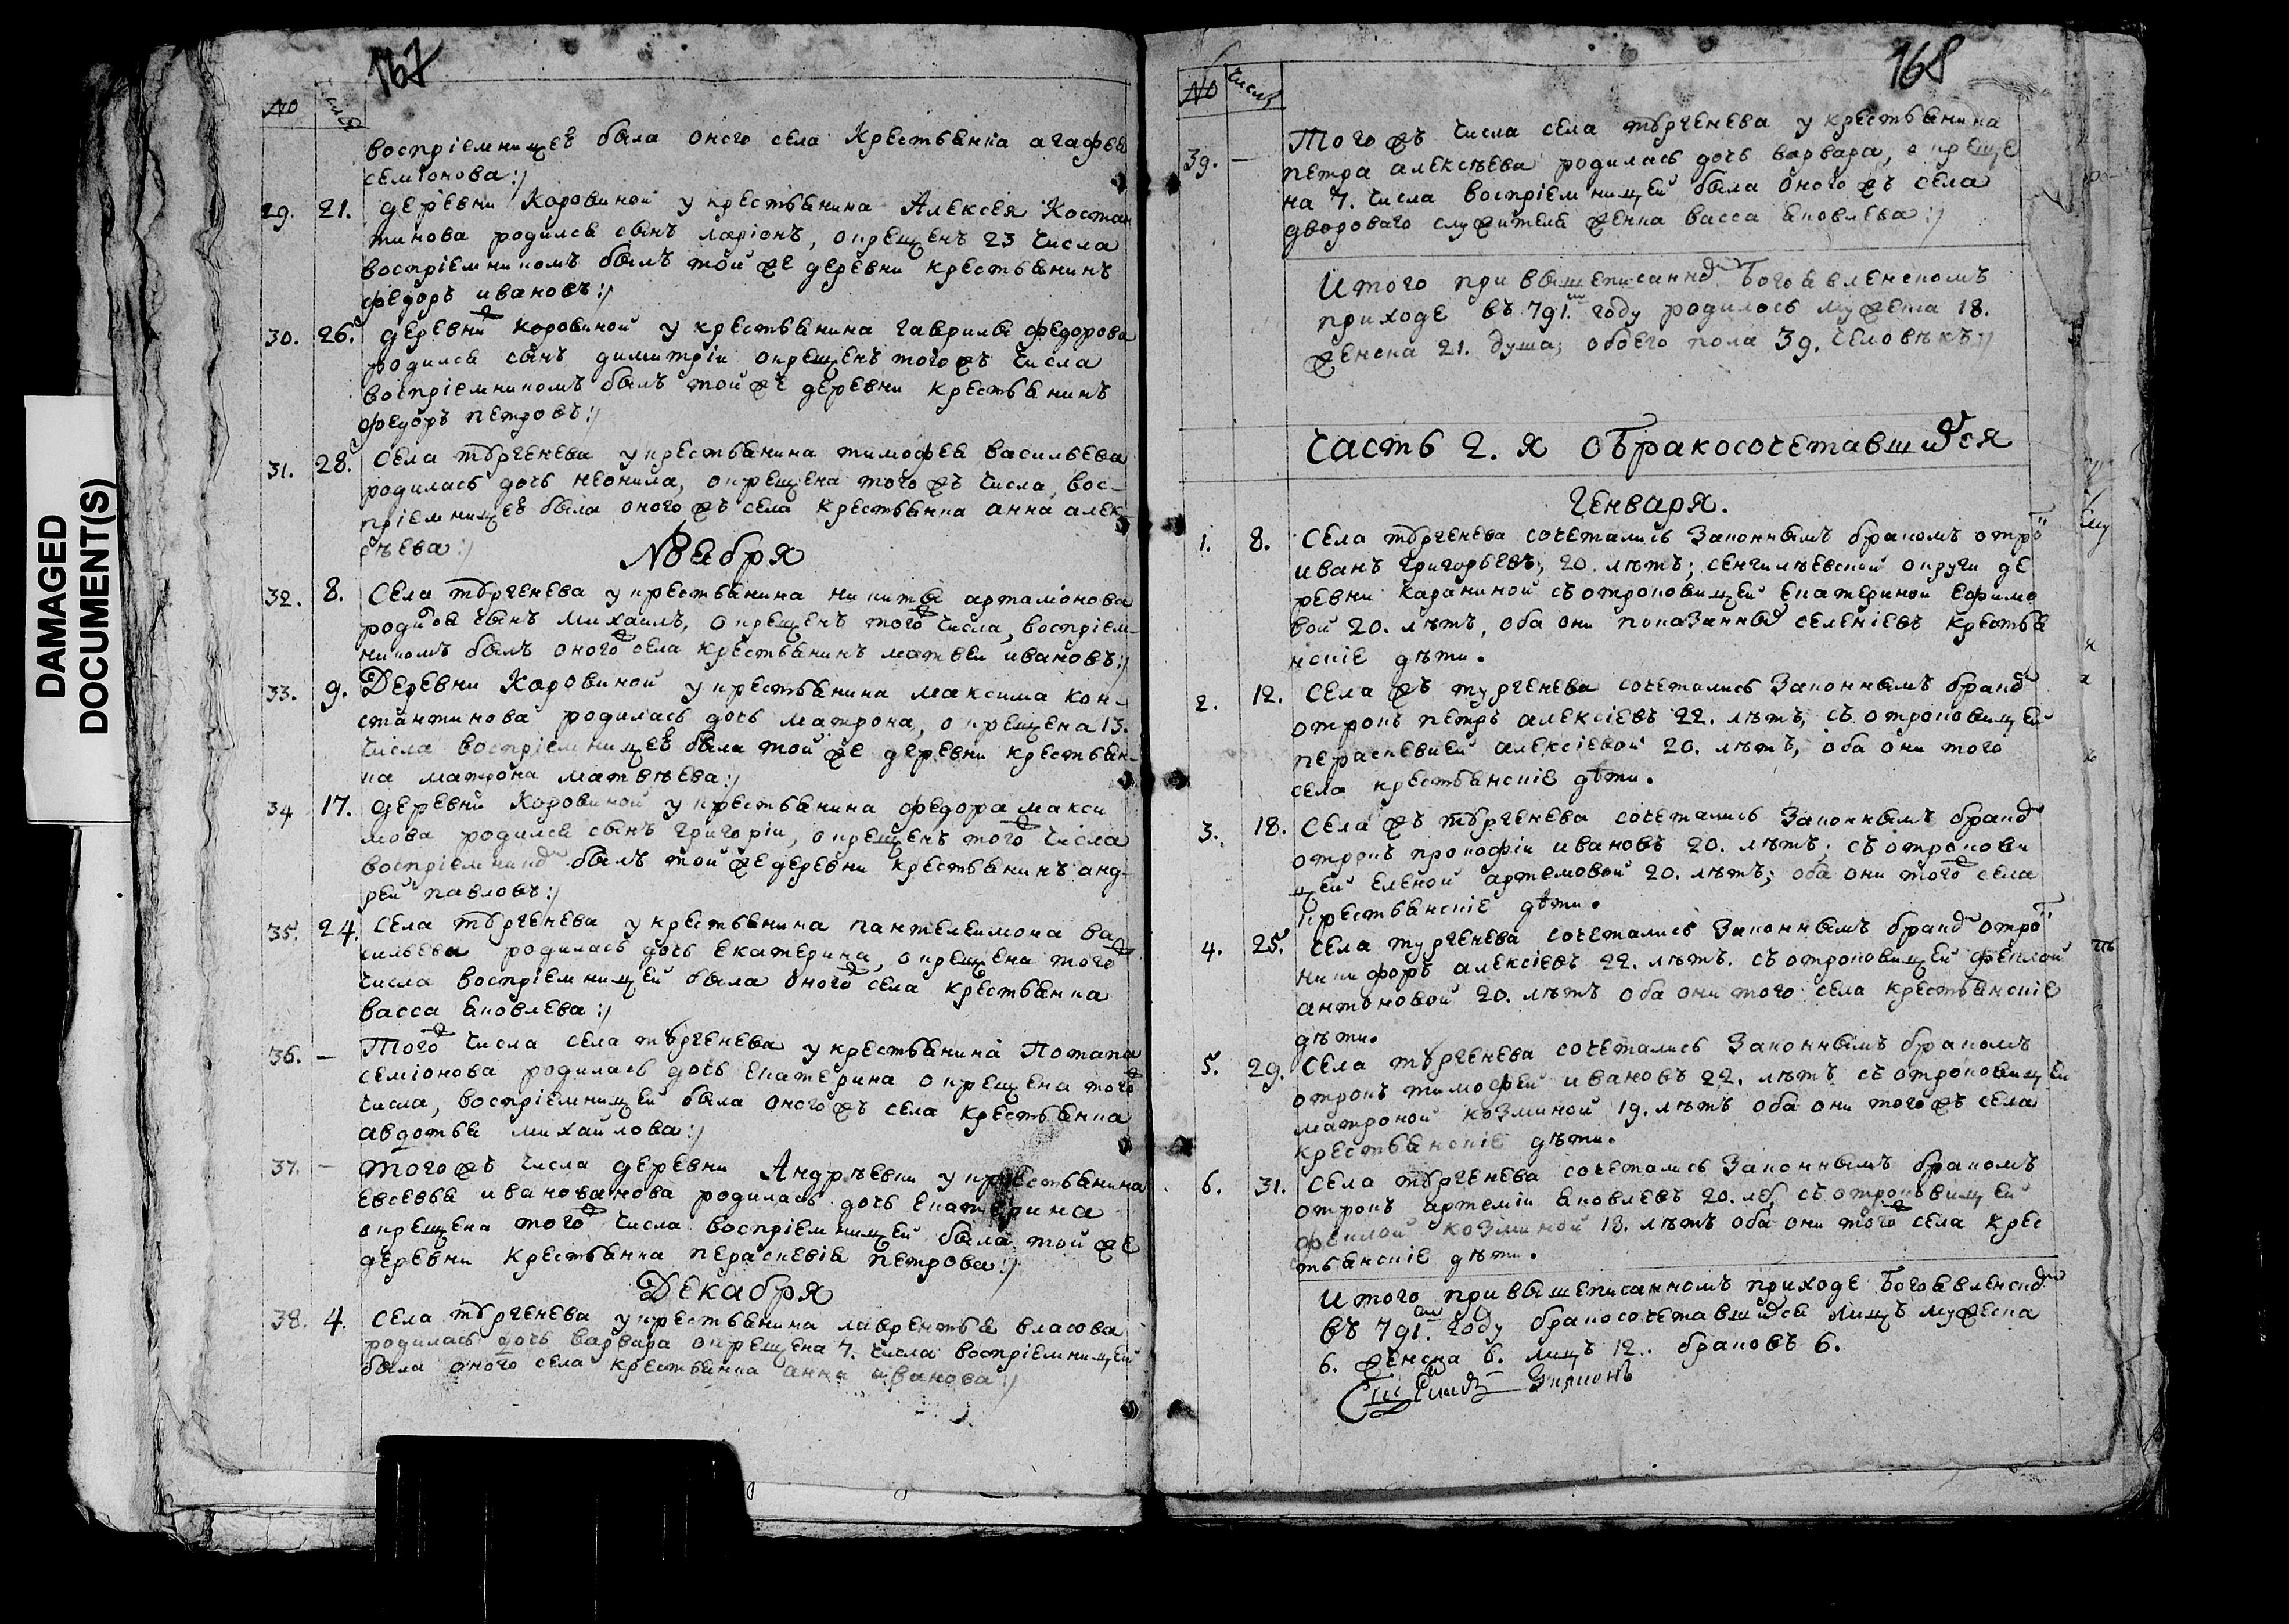 DAMAGED
DOCUMENT(S)
167
№ числа
воспріемницей была оного села крестьянка агафья
семіонова:/
29. 21. деревни Коровиной у крестьянина Алексея Костан
тинова родился сынъ ларіонъ, окрещенъ 23 числа
воспріемникомъ былъ той же деревни крестьянинъ
федоръ ивановъ:/
30. 26. деревни коровиной у крестьянина гаврилы федорова
родился сынъ димитріи окрещенъ того жъ числа
воспріемникомъ былъ той же деревни крестьянинъ
федоръ петровъ:/
31. 28. Села тургенева у крестьянина тимофея васильева
родилась дочь неонила, окрещена того жъ числа, вос-
пріемницей была оного жъ села крестьянка анна алек
сѣева:/
Ноября
32. 8. Села тургенева у крестьянина никиты артаміонова
родился сынъ михаилъ, окрещенъ того ж числа, воспріем-
никомъ былъ оного ж села крестьянинъ матвеи ивановъ:/
33. 9. Деревни Коровиной у крестьянина максима кон-
стантинова родилась дочь матрона, окрещена 13.
числа воспріемницей была той же деревни крестьян-
ка матрона матвѣева:/
34 17. деревни Коровиной у крестьянина федора макси
мова родился сынъ григоріи, окрещенъ того ж числа
воспріемником былъ той же деревни крестьянинъ анд-
рей павловъ:/
35. 24. Села тургенева у крестьянина пантелеимона ва
сильева родилась дочь екатерина, окрещена того ж
числа воспріемницей была оного ж села крестьянка
васса яковлева:/
36. — Того ж числа села тургенева у крестьянина Потапа
семіонова родилась дочь екатерина окрещена того ж
числа, воспріемницей была оного жъ села крестьянка
авдотья михаилова:/
37. — того жъ числа деревни Андрѣевки у крестьянина
евсевья иванованова родилась дочь екатерина
окрещена того ж числа воспріемницей была той же
деревни крестьянка пераскевія петрова:/
Декабря
38. 4. села тургенева у крестьянина лаврентья власова
родилась дочь варвара окрещена 7. числа воспріемницей
была оного села крестьянка анна иванова:/
168
№ числа
39. — Того жъ числа села тургенева у крестьянина
петра алексѣева родилась дочь варвара, окреще
на 7. числа воспріемницей была оного жъ села
двороваго служителя жена васса яковлева:/
Итого при вышеписанном богоявленскомъ
приходе въ 791.м году родилось мужеска 18.
женска 21. душа; обоего пола 39. человѣкъ:/
часть 2. я о бракосочетавшихся
Генваря.
1. 8. Села тургенева сочетались законнымъ бракомъ отрок
иванъ григорьевъ; 20. лѣтъ; сенгилѣевской округи де
ревни караниной съ отроковицей екатериной ефимо
вой 20. лѣтъ, оба они показанных селеніевъ крестья
нскіе дѣти.
2. 12. Села жъ тургенева сочетались законнымъ браком
отрокъ петръ алексіевъ 22. лѣтъ, съ отроковицей
пераскевией алексіевой 20. лѣтъ, оба они того
села крестьянскіе дѣти.
3. 18. Села жъ тургенева сочетались законнымъ браком
отрокъ прокофіи ивановъ 20. лѣтъ; съ отрокови
цей еленой артемовой 20. лѣтъ; оба они того ж села
крестьянскіе дѣти.
4. 25. села тургенева сочетались законнымъ браком отрок
никифоръ алексіевъ 22. лѣтъ. съ отроковицей феклой
антоновой 20. лѣтъ оба они того села крестьянскіе
дѣти.
5. 29. Села тургенева сочетались законнымъ бракомъ
отрокъ тимофей ивановъ 22. лѣтъ съ отроковицей
матроной козминой 19. лѣтъ оба они того жъ села
крестьянскіе дѣти.
6. 31. Села тургенева сочетались законнымъ бракомъ
отрокъ артеміи яковлевъ 20. лѣт съ отроковицей
феклой козминой 18. лѣтъ оба они того ж села крес
тьянскіе дѣти.
Итого при вышеписанномъ приходе богоявленском
въ 791.м году бракосочетавшихся лицъ мужеска
6. женска 6. лицъ 12. браковъ 6.